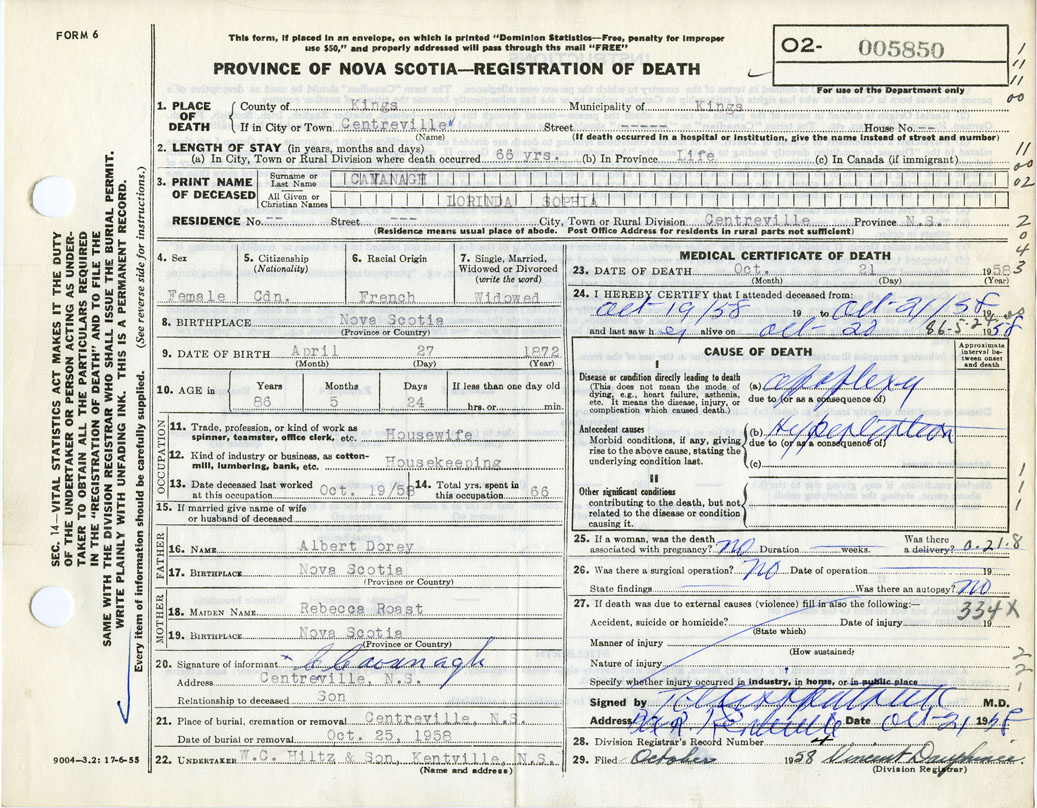 FORM 6
This form, if placed in an envelope, on which is printed "Dominion Statistics—Free, penalty for improper
use $50," and properly addressed will pass through the mail "FREE"
PROVINCE OF NOVA SCOTIA—REGISTRATION OF DEATH
O2- 005850
For use of the Department only
SEC. 14—VITAL STATISTICS ACT MAKES IT THE DUTY
OF THE UNDERTAKER OR PERSON ACTING AS UNDER-
TAKER TO OBTAIN ALL THE PARTICULARS REQUIRED
IN THE "REGISTRATION OF DEATH" AND TO FILE THE
SAME WITH THE DIVISION REGISTRAR WHO SHALL ISSUE THE BURIAL PERMIT.
WRITE PLAINLY WITH UNFADING INK. THIS IS A PERMANENT RECORD.
Every item of information should be carefully supplied. (See reverse side for instructions.)
1. PLACE OF DEATH County of Kings Municipality of Kings
If in City or Town Centreville Street ----- House No. --
(Name) (If death occurred in a hospital or institution, give the name instead of street and number)
2. LENGTH OF STAY (in years, months and days)
(a) In City, Town or Rural Division where death occurred 66 yrs. (b) In Province Life (c) In Canada (if immigrant)
3. PRINT NAME OF DECEASED Surname or Last Name CAVANAGH
All Given or Christian Names LORINDA SOPHIA
RESIDENCE No. -- Street --- City, Town or Rural Division Centreville Province N.S.
(Residence means usual place of abode. Post Office Address for residents in rural parts not sufficient)
4. Sex 5. Citizenship (Nationality) 6. Racial Origin 7. Single, Married, Widowed or Divorced (write the word)
Female Cdn. French Widowed
8. BIRTHPLACE Nova Scotia
(Province or Country)
9. DATE OF BIRTH April 27 1872
(Month) (Day) (Year)
10. AGE in Years Months Days If less than one day old
86 5 24 hrs. or min.
OCCUPATION
11. Trade, profession, or kind of work as
spinner, teamster, office clerk, etc. Housewife
12. Kind of industry or business, as cotton-
mill, lumbering, bank, etc. Housekeeping
13. Date deceased last worked at this occupation Oct. 19/58 14. Total yrs. spent in this occupation 66
15. If married give name of wife
or husband of deceased
FATHER
16. NAME Albert Dorey
17. BIRTHPLACE Nova Scotia
(Province or Country)
MOTHER
18. MAIDEN NAME Rebecca Roast
19. BIRTHPLACE Nova Scotia
(Province or Country)
20. Signature of informant C Cavanagh
Address Centreville, N.S.
Relationship to deceased Son
21. Place of burial, cremation or removal Centreville, N.S.
Date of burial or removal Oct. 25, 1958
22. UNDERTAKER W.C. Hiltz & Son, Kentville, N.S.
(Name and address)
9004—3.2: 17-6-55
MEDICAL CERTIFICATE OF DEATH
23. DATE OF DEATH Oct. 21 1958
(Month) (Day) (Year)
24. I HEREBY CERTIFY that I attended deceased from:
Oct-19/58 19 to Oct-21/58 19
and last saw her alive on Oct-20 1958
86-5-24
CAUSE OF DEATH
Approximate interval between onset and death
I
Disease or condition directly leading to death
(This does not mean the mode of
dying, e.g., heart failure, asthenia,
etc. It means the disease, injury, or
complication which caused death.)
(a) Apoplexy
due to (or as a consequence of)
Antecedent causes
Morbid conditions, if any, giving
rise to the above cause, stating the
underlying condition last.
(b) Hypertention
due to (or as a consequence of)
(c)
II
Other significant conditions
contributing to the death, but not
related to the disease or condition
causing it.
25. If a woman, was the death
associated with pregnancy? no Duration weeks. Was there a delivery?
0.21.8
26. Was there a surgical operation? no Date of operation 19
State findings Was there an autopsy? no
27. If death was due to external causes (violence) fill in also the following:—
334X
Accident, suicide or homicide? Date of injury 19
(State which)
Manner of injury
(How sustained)
Nature of injury
Specify whether injury occurred in industry, in home, or in public place
Signed by M.D.
Address Date Oct-21 1958
28. Division Registrar's Record Number 4
29. Filed October 1958 Vincent
(Division Registrar)